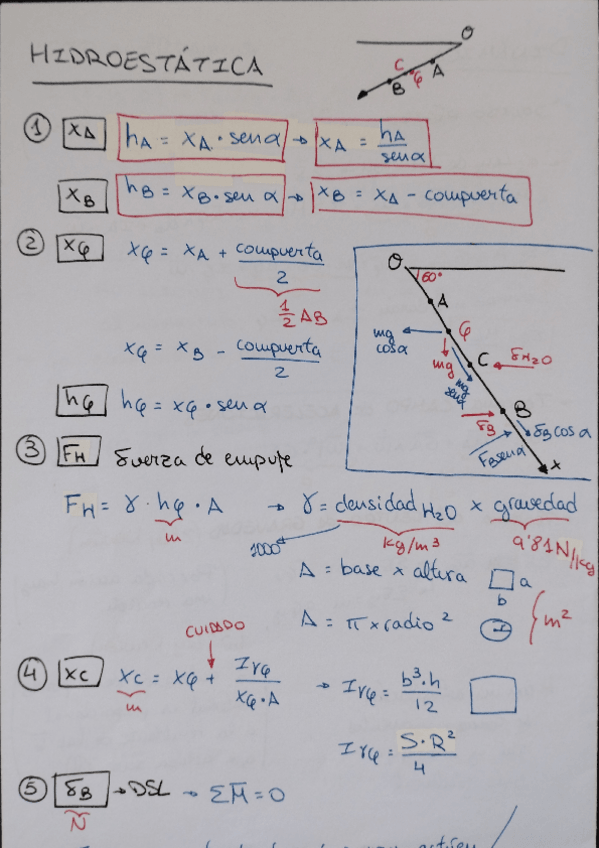 HIDROESTÁTICA
O
C
A
φ
B
① XA hA = XA · sen α → XA = hA / sen α
XB hB = XB · sen α → XB = XA - compuerta
② Xφ Xφ = XA + compuerta / 2
1/2 AB
Xφ = XB - compuerta / 2
hφ hφ = Xφ · sen α
O
60°
A
mg cos α
φ
mg
mg sen α
C
FH2O
FB
B
FB cos α
FB sen α
x
③ FH fuerza de empuje
FH = γ · hφ · A → γ = densidad H2O x gravedad
m
1000
kg/m³
9'81 N/kg
A = base x altura a
b
A = π x radio² m²
CUIDADO
④ XC XC = Xφ + Irφ / Xφ · A → Irφ = b³ · h / 12
m
Irφ = S · R² / 4
⑤ FB → DSL → ΣM̄ = 0
N